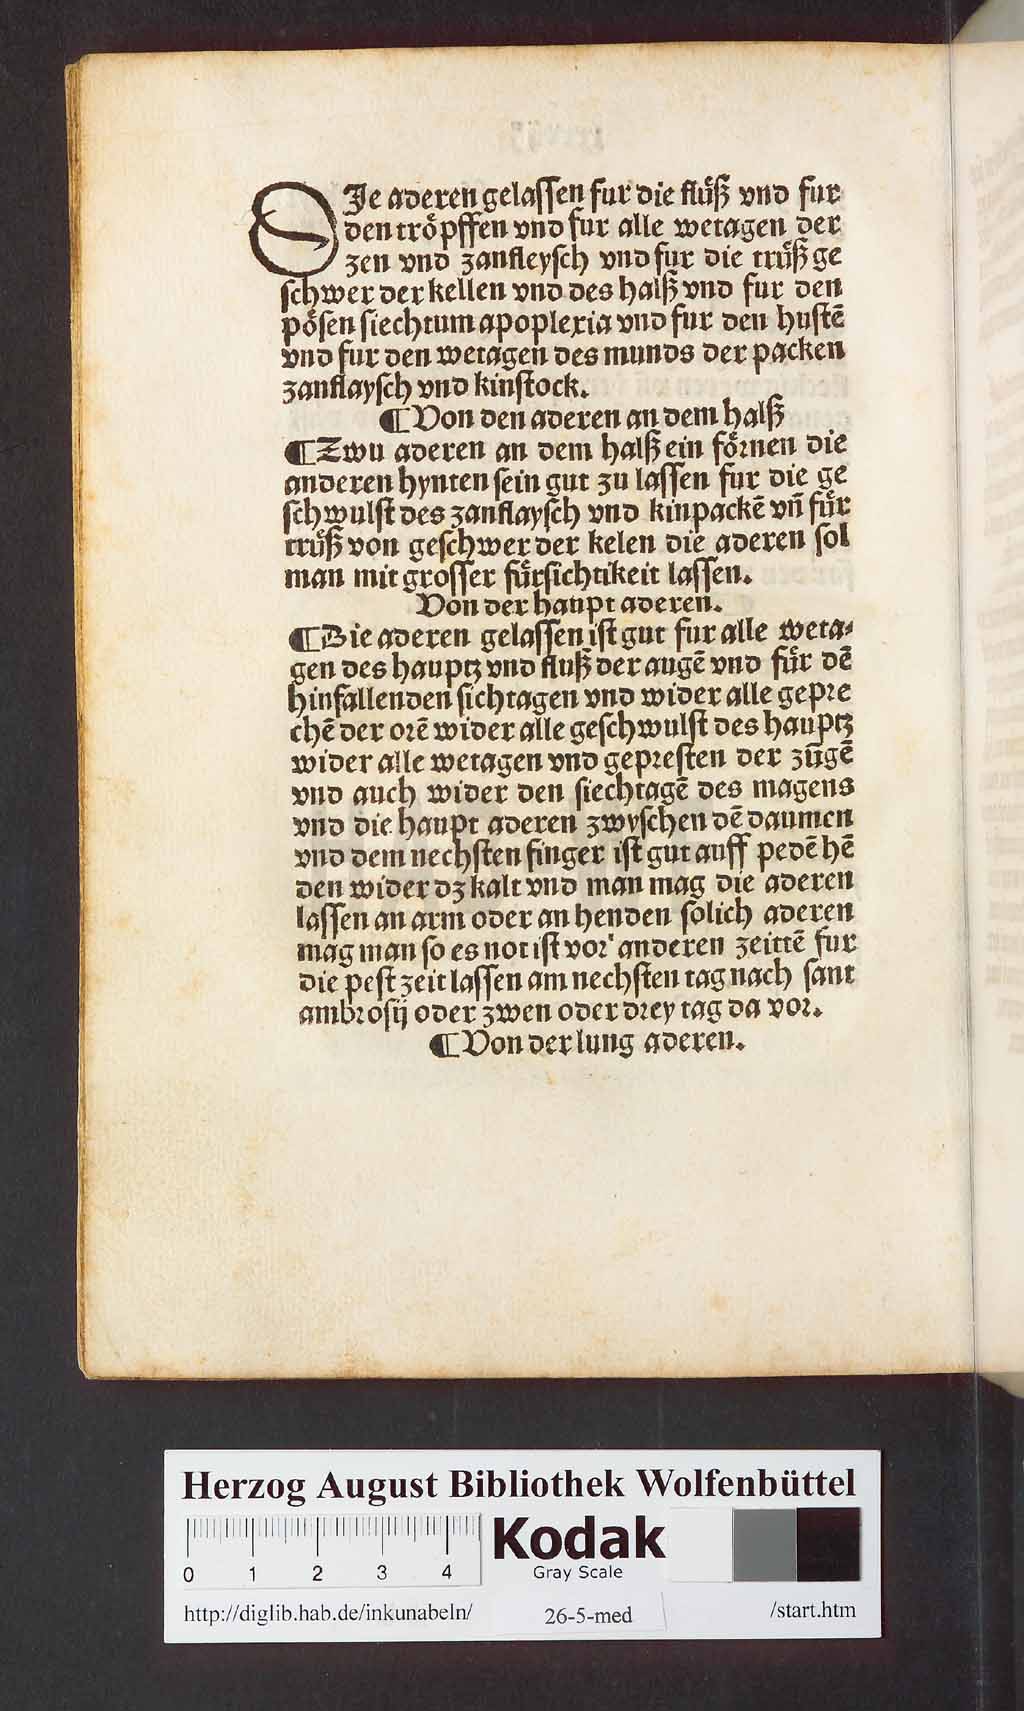 DIe aderen gelassen fur die flüß vnd fur
den tröpffen vnd fur alle wetagen der
zen vnd zanfleysch vnd fur die trüß ge
schwer der kellen vnd des halß vnd fur den
pösen siechtum apoplexia vnd fur den hustē
vnd fur den wetagen des munds der packen
zanflaysch vnd kinstock.
¶ Von den aderen an dem halß
¶ Zwu aderen an dem halß ein förnen die
anderen hynten sein gut zu lassen fur die ge
schwulst des zanflaysch vnd kinpackē vn̄ für
trüß von geschwer der kelen die aderen sol
man mit grosser fürsichtikeit lassen.
Von der haupt aderen.
¶ Die aderen gelassen ist gut fur alle weta⸗
gen des hauptz vnd fluß der augē vnd für dē
hinfallenden sichtagen vnd wider alle gepre
chē der orē wider alle geschwulst des hauptz
wider alle wetagen vnd gepresten der zūgē
vnd auch wider den siechtagē des magens
vnd die haupt aderen zwyschen dē daumen
vnd dem nechsten finger ist gut auff pedē hē
den wider dz kalt vnd man mag die aderen
lassen an arm oder an henden solich aderen
mag man so es not ist vor anderen zeittē fur
die pest zeit lassen am nechsten tag nach sant
ambrosij oder zwen oder drey tag da vor.
¶ Von der lung aderen.
Herzog August Bibliothek Wolfenbüttel
0 1 2 3 4
Kodak
Gray Scale
http://diglib.hab.de/inkunabeln/ 26-5-med /start.htm